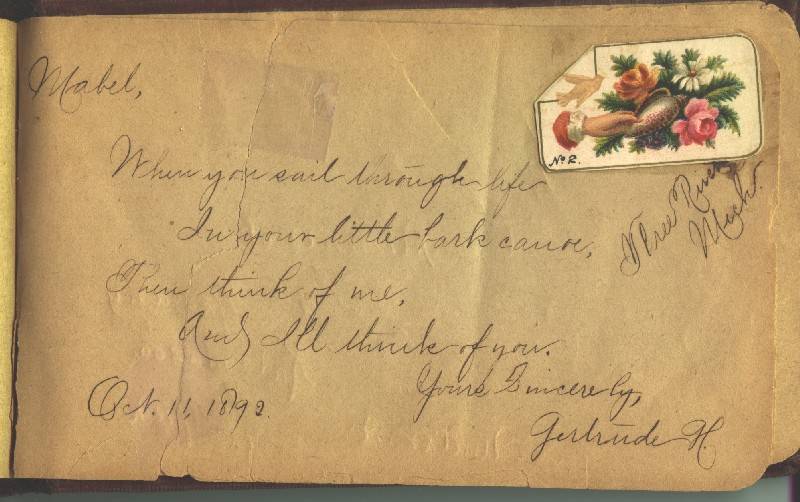 Mabel,
When you sail through life
In your little bark canoe,
Then think of me,
And I'll think of you.
Yours Sincerely,
Gertrude H.
Oct. 11, 1892.
No 2.
Mich.